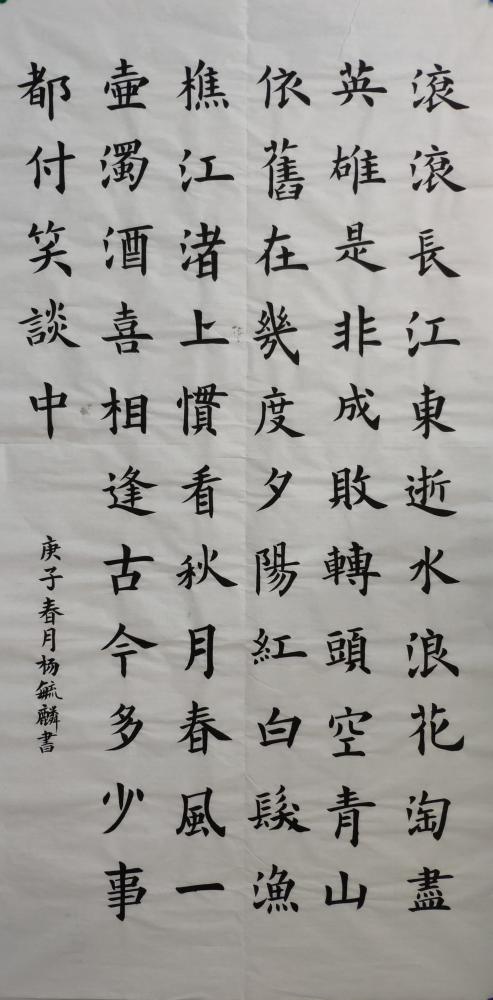 滾滾長江東逝水浪花淘盡
英雄是非成敗轉頭空青山
依舊在幾度夕陽紅白髮漁
樵江渚上慣看秋月春風一
壷濁酒喜相逢古今多少事
都付笑談中
庚子春月杨毓麟書